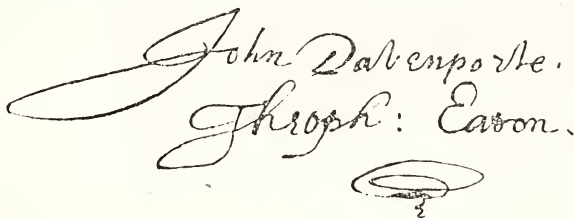 John Davenporte.
Theoph: Eaton.